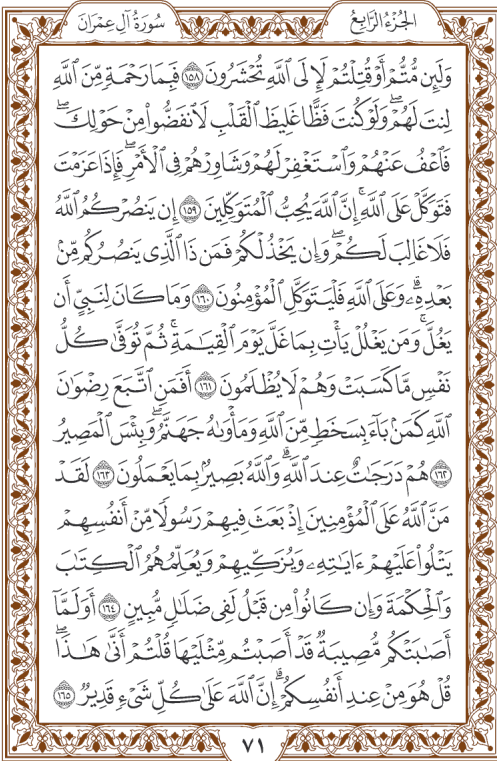 الجُزْءُ الرَّابِعُ
سُورَةُ آلِ عِمْرَانَ
وَلَئِن مُّتُّمْ أَوْ قُتِلْتُمْ لَإِلَى ٱللَّهِ تُحْشَرُونَ ١٥٨ فَبِمَا رَحْمَةٍ مِّنَ ٱللَّهِ
لِنتَ لَهُمْ ۖ وَلَوْ كُنتَ فَظًّا غَلِيظَ ٱلْقَلْبِ لَٱنفَضُّوا۟ مِنْ حَوْلِكَ ۖ
فَٱعْفُ عَنْهُمْ وَٱسْتَغْفِرْ لَهُمْ وَشَاوِرْهُمْ فِى ٱلْأَمْرِ ۖ فَإِذَا عَزَمْتَ
فَتَوَكَّلْ عَلَى ٱللَّهِ ۚ إِنَّ ٱللَّهَ يُحِبُّ ٱلْمُتَوَكِّلِينَ ١٥٩ إِن يَنصُرْكُمُ ٱللَّهُ
فَلَا غَالِبَ لَكُمْ ۖ وَإِن يَخْذُلْكُمْ فَمَن ذَا ٱلَّذِى يَنصُرُكُم مِّنۢ
بَعْدِهِۦ ۗ وَعَلَى ٱللَّهِ فَلْيَتَوَكَّلِ ٱلْمُؤْمِنُونَ ١٦٠ وَمَا كَانَ لِنَبِىٍّ أَن
يَغُلَّ ۚ وَمَن يَغْلُلْ يَأْتِ بِمَا غَلَّ يَوْمَ ٱلْقِيَـٰمَةِ ۚ ثُمَّ تُوَفَّىٰ كُلُّ
نَفْسٍ مَّا كَسَبَتْ وَهُمْ لَا يُظْلَمُونَ ١٦١ أَفَمَنِ ٱتَّبَعَ رِضْوَٰنَ
ٱللَّهِ كَمَنۢ بَآءَ بِسَخَطٍ مِّنَ ٱللَّهِ وَمَأْوَىٰهُ جَهَنَّمُ ۚ وَبِئْسَ ٱلْمَصِيرُ
١٦٢ هُمْ دَرَجَـٰتٌ عِندَ ٱللَّهِ ۗ وَٱللَّهُ بَصِيرٌۢ بِمَا يَعْمَلُونَ ١٦٣ لَقَدْ
مَنَّ ٱللَّهُ عَلَى ٱلْمُؤْمِنِينَ إِذْ بَعَثَ فِيهِمْ رَسُولًا مِّنْ أَنفُسِهِمْ
يَتْلُوا۟ عَلَيْهِمْ ءَايَـٰتِهِۦ وَيُزَكِّيهِمْ وَيُعَلِّمُهُمُ ٱلْكِتَـٰبَ
وَٱلْحِكْمَةَ وَإِن كَانُوا۟ مِن قَبْلُ لَفِى ضَلَـٰلٍ مُّبِينٍ ١٦٤ أَوَلَمَّآ
أَصَـٰبَتْكُم مُّصِيبَةٌ قَدْ أَصَبْتُم مِّثْلَيْهَا قُلْتُمْ أَنَّىٰ هَـٰذَا ۖ
قُلْ هُوَ مِنْ عِندِ أَنفُسِكُمْ ۗ إِنَّ ٱللَّهَ عَلَىٰ كُلِّ شَىْءٍ قَدِيرٌ ١٦٥
٧١